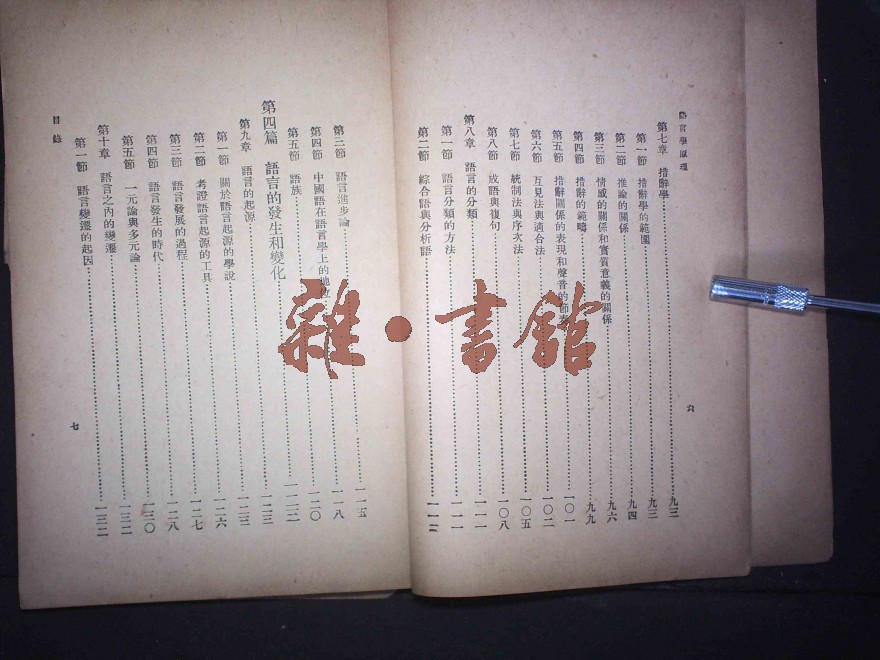 語言學原理
第七章 措辭學 九三
第一節 措辭學的範圍 九三
第二節 推論的關係 九四
第三節 情感的關係和實質意義的關係 九六
第四節 措辭的範疇 九九
第五節 措辭關係的表現和聲音的節奏 一〇一
第六節 互見法與適合法 一〇二
第七節 統制法與序次法 一〇五
第八節 成語與複句 一〇八
第八章 語言的分類 一一一
第一節 語言分類的方法 一一一
第二節 綜合語與分析語 一一二
六
第三節 語言進步論 一一五
第四節 中國語在語言學上的地位 一一八
第五節 語族 一二〇
第四篇 語言的發生和變化 一二三
第九章 語言的起源 一二三
第一節 關於語言起源的學說 一二三
第二節 考證語言起源的工具 一二六
第三節 語言發展的過程 一二七
第四節 語言發生的時代 一二八
第五節 一元論與多元論 一三〇
第十章 語言之內的變遷 一三二
第一節 語言變遷的起因 一三二
目錄
七
雜·書館